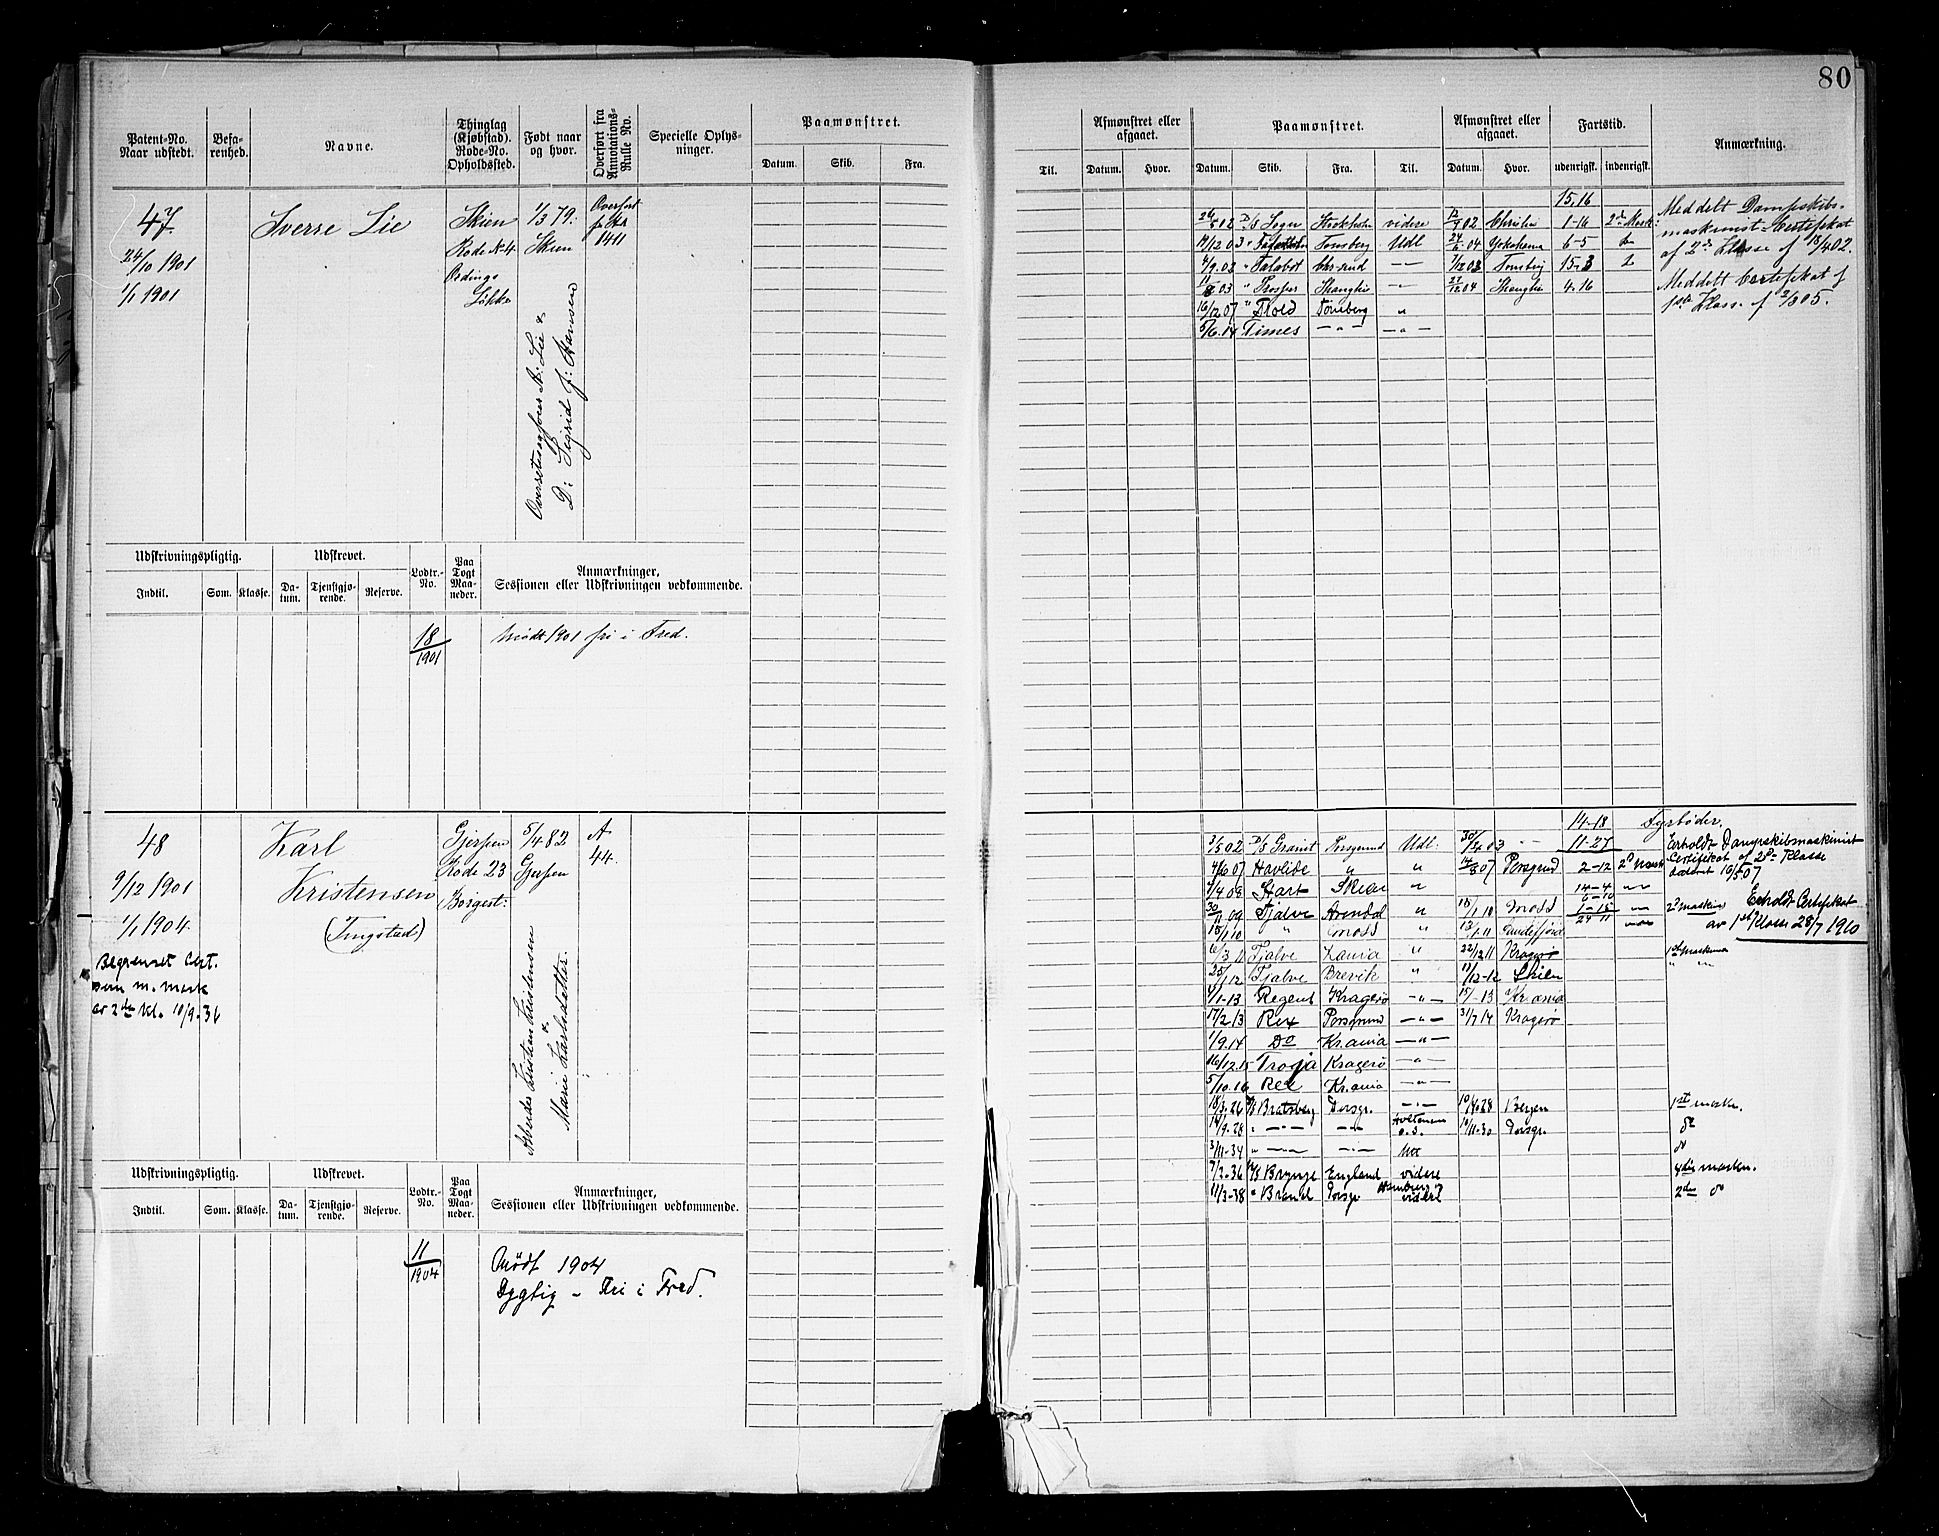 80
Patent-No.
Naar udstedt.
Befa-
renhed.
Navne.
Thinglag
(Kjøbstad).
Rode-No.
Opholdssted.
Født naar
og hvor.
Overført fra
Annotations-
Rulle No.
Specielle Oplys-
ninger.
Paamønstret.
Datum. Skib. Fra.
Til.
Afmønstret eller
afgaaet.
Datum. Hvor.
Paamønstret.
Datum. Skib. Fra. Til.
Afmønstret eller
afgaaet.
Datum. Hvor.
Fartstid.
udenrigsk. indenrigsk.
Anmærkning.
47
24/10 1901
1/1 1901
Sverre Lie
Skien
Rode No 4
Ordings
Løkke
1/3 79.
Skien
Overført
1411
Oversetssafører A: Lie &
D: Sigrid f: Hansen
15,16
02 D/S Sogn Stockholm videre 12/9 02 Christia 1-16 2den Mask:
14/12 03 " Tonsberg Udl 24/6 04 Yokohama 6-5
4/9.03 " Talabot Chr.sand — 7/12 03 Tonsbg 15-3 2
11/8 03 " Prosper Shanghai — 27/12 04 Shanghai 4.16
16/12 07 " Skold Tönsberg "
5/6.14 Times —"— —"—
Meddelt Dampskibs-
maskinist-Certifikat
af 2den Klasse af 18/4 02.
Meddelt Certifikat af
1ste Klasse af 3/3 05.
Udskrivningspligtig.
Indtil. Som. Klasse.
Udskrevet.
Da-
tum. Tjenstgjø-
rende. Reserve.
Lodtr.-
No.
Paa
Togt
Maa-
neder.
Anmærkninger,
Sessionen eller Udskrivningen vedkommende.
18
1901
Mødt 1901 fri i Fred.
48
9/12 1901
1/1 1904.
Begrenset Cert.
som m. mask
av 2den Kl. 10/9.36
Karl
Kristensen
(Tingstad)
Gjerpen
Rode 23
Borgest:
5/4 82
Gjerpen
A
44.
Arbeider Kristen Kristensen
&
Maren Karlsdatter.
14-18 Fyrbøder,
3/5 02 D/S Granit Porsgrund Udl. 30/4 03 " 11-27
4/6 07 Havlide " " 14/8 07 Porsgrund 2-12 2d Mask
1/4 08 Start Skien " 14-4 "
30/11 09 Tjalve Arendal " 18/1 10 Moss 1-15 " 2d maskin
18/1 10 " Moss " 13/1 11 Sandefjord 29 11
6/3 11 Tjalve Larvia " 22/12 11 Kragerø 1ste Maskin
25/1 12 Tjalve Brevik " 17/12-12 Skien " "
1/1-13 Regent Kragerø —"— 15/1-13 Kr.ania
17/2 13 Rex Porsgrund —"— 31/7 14 Kragerø
1/9.14 Do Kr.ania —"—
16/12.15 Troja Kragerø —"—
5/10.16 Rex Kr.ania —"—
18/3.26 D/S Bratsberg Porsgr. —"— 10/4.28 Bergen 1st mask.
14/9.28 " —"— —"— Holtenau o.s. 10/11.30 Porsgr. do
3/11-34 " —"— —"— Udl do
7/2.36 M/S Brynje England videre 4des maskn.
11/3-38 " Brand Porsgr Hamburg videre 2den do
Erholdt Dampskibsmaskinist
Certifikat af 2den Klasse
dateret 10/5 07
Erholdt Certifikat
av 1st Klasse 28/7 1910
Udskrivningspligtig.
Indtil. Som. Klasse.
Udskrevet.
Da-
tum. Tjenstgjø-
rende. Reserve.
Lodtr.-
No.
Paa
Togt
Maa-
neder.
Anmærkninger,
Sessionen eller Udskrivningen vedkommende.
11
1904
Mødt 1904
Dygtig – Fri i Fred.